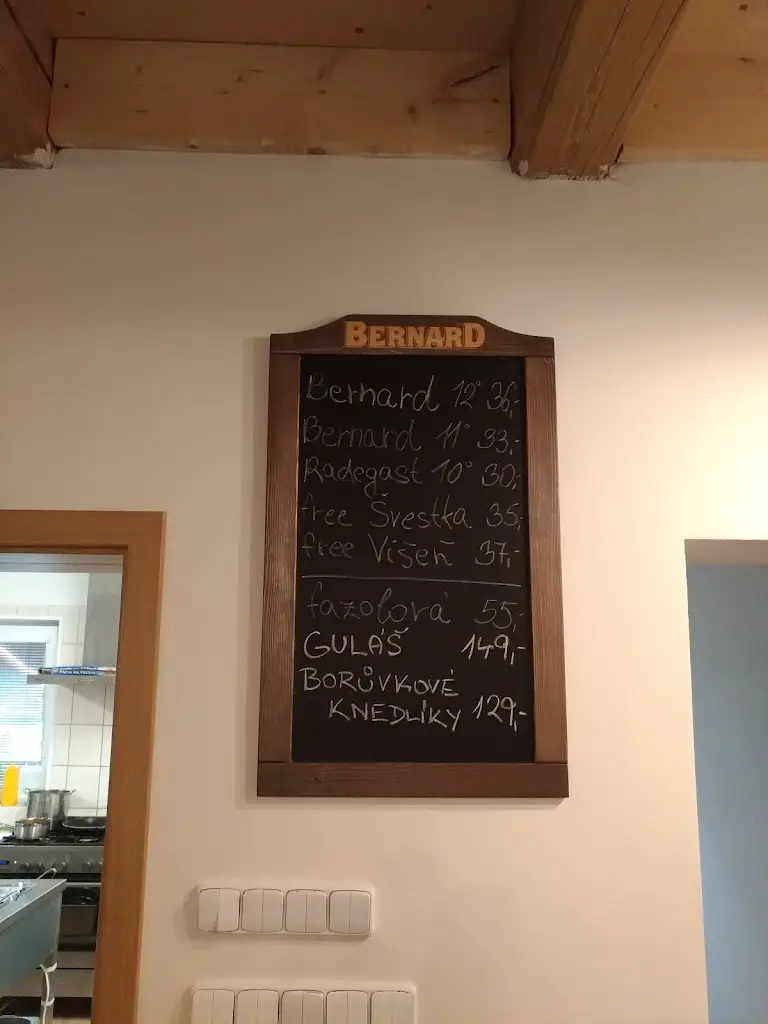 BERNARD
Bernard 12° 36,-
Bernard 11° 33,-
Radegast 10° 30,-
free Švestka 35,-
free Višeň 37,-
fazolová 55,-
GULÁŠ 149,-
BORŮVKOVÉ
KNEDLÍKY 129,-